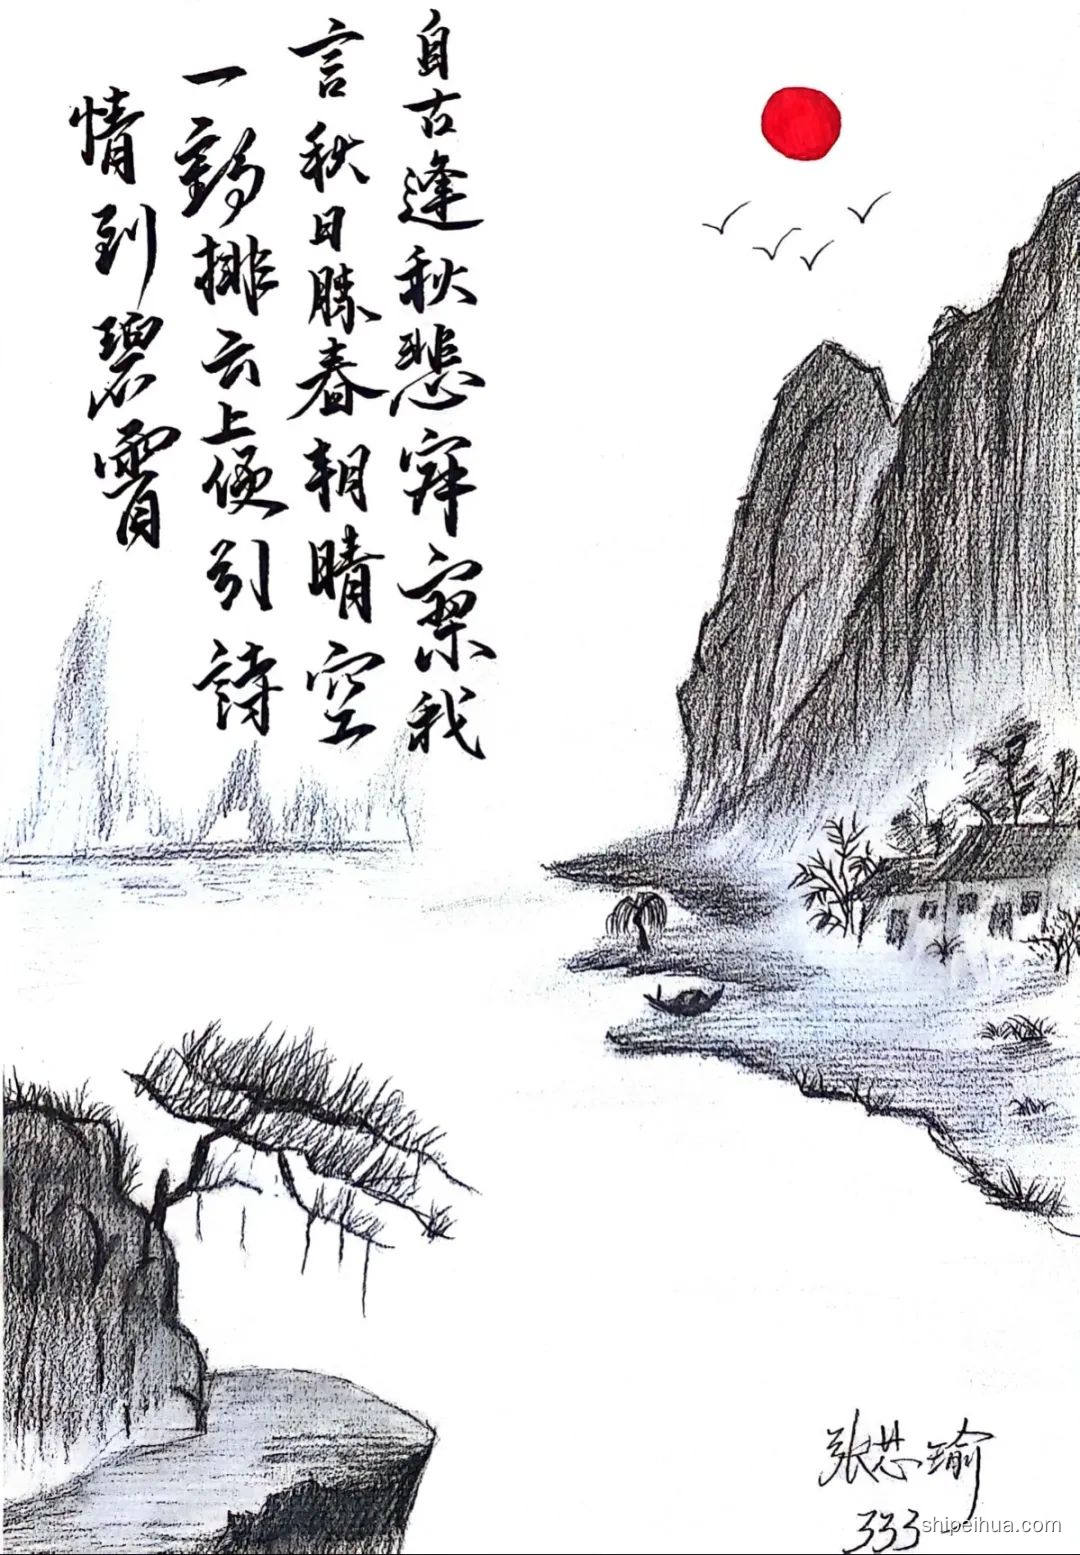 自古逢秋悲寂寥我
言秋日勝春朝晴空
一鹤排云上便引詩
情到碧霄
张芯瑜
333
shipeihua.com